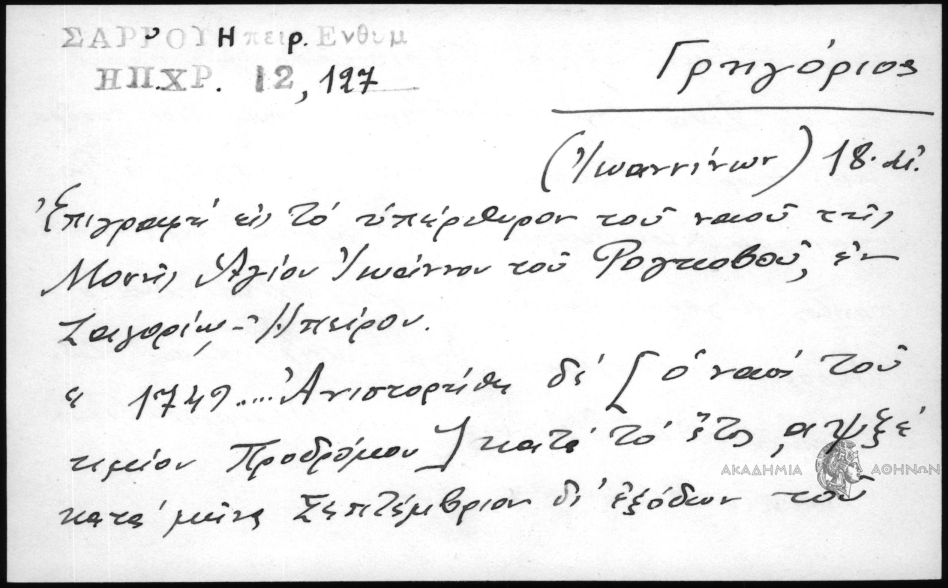 ΣΑΡΡΟΥ Ηπειρ. Ενθυμ
ΗΠ.ΧΡ. 12, 127
Γρηγόριος
(Ἰωαννίνων) 18. αἰ.
Ἐπιγραφή εἰς τό ὑπέρθυρον τοῦ ναοῦ τῆς
Μονῆς Ἁγίου Ἰωάννου τοῦ Ρογκοβοῦ, ἐν
Ζαγορίῳ - Ἠπείρου.
« 1749.... Ἀνιστορήθη δέ [ὁ ναός τοῦ
τιμίου Προδρόμου] κατά τό ἔτος ͵αψξέ
κατά μῆνα Σεπτέμβριον δι' ἐξόδων τοῦ
ΑΚΑΔΗΜΙΑ ΑΘΗΝΩΝ